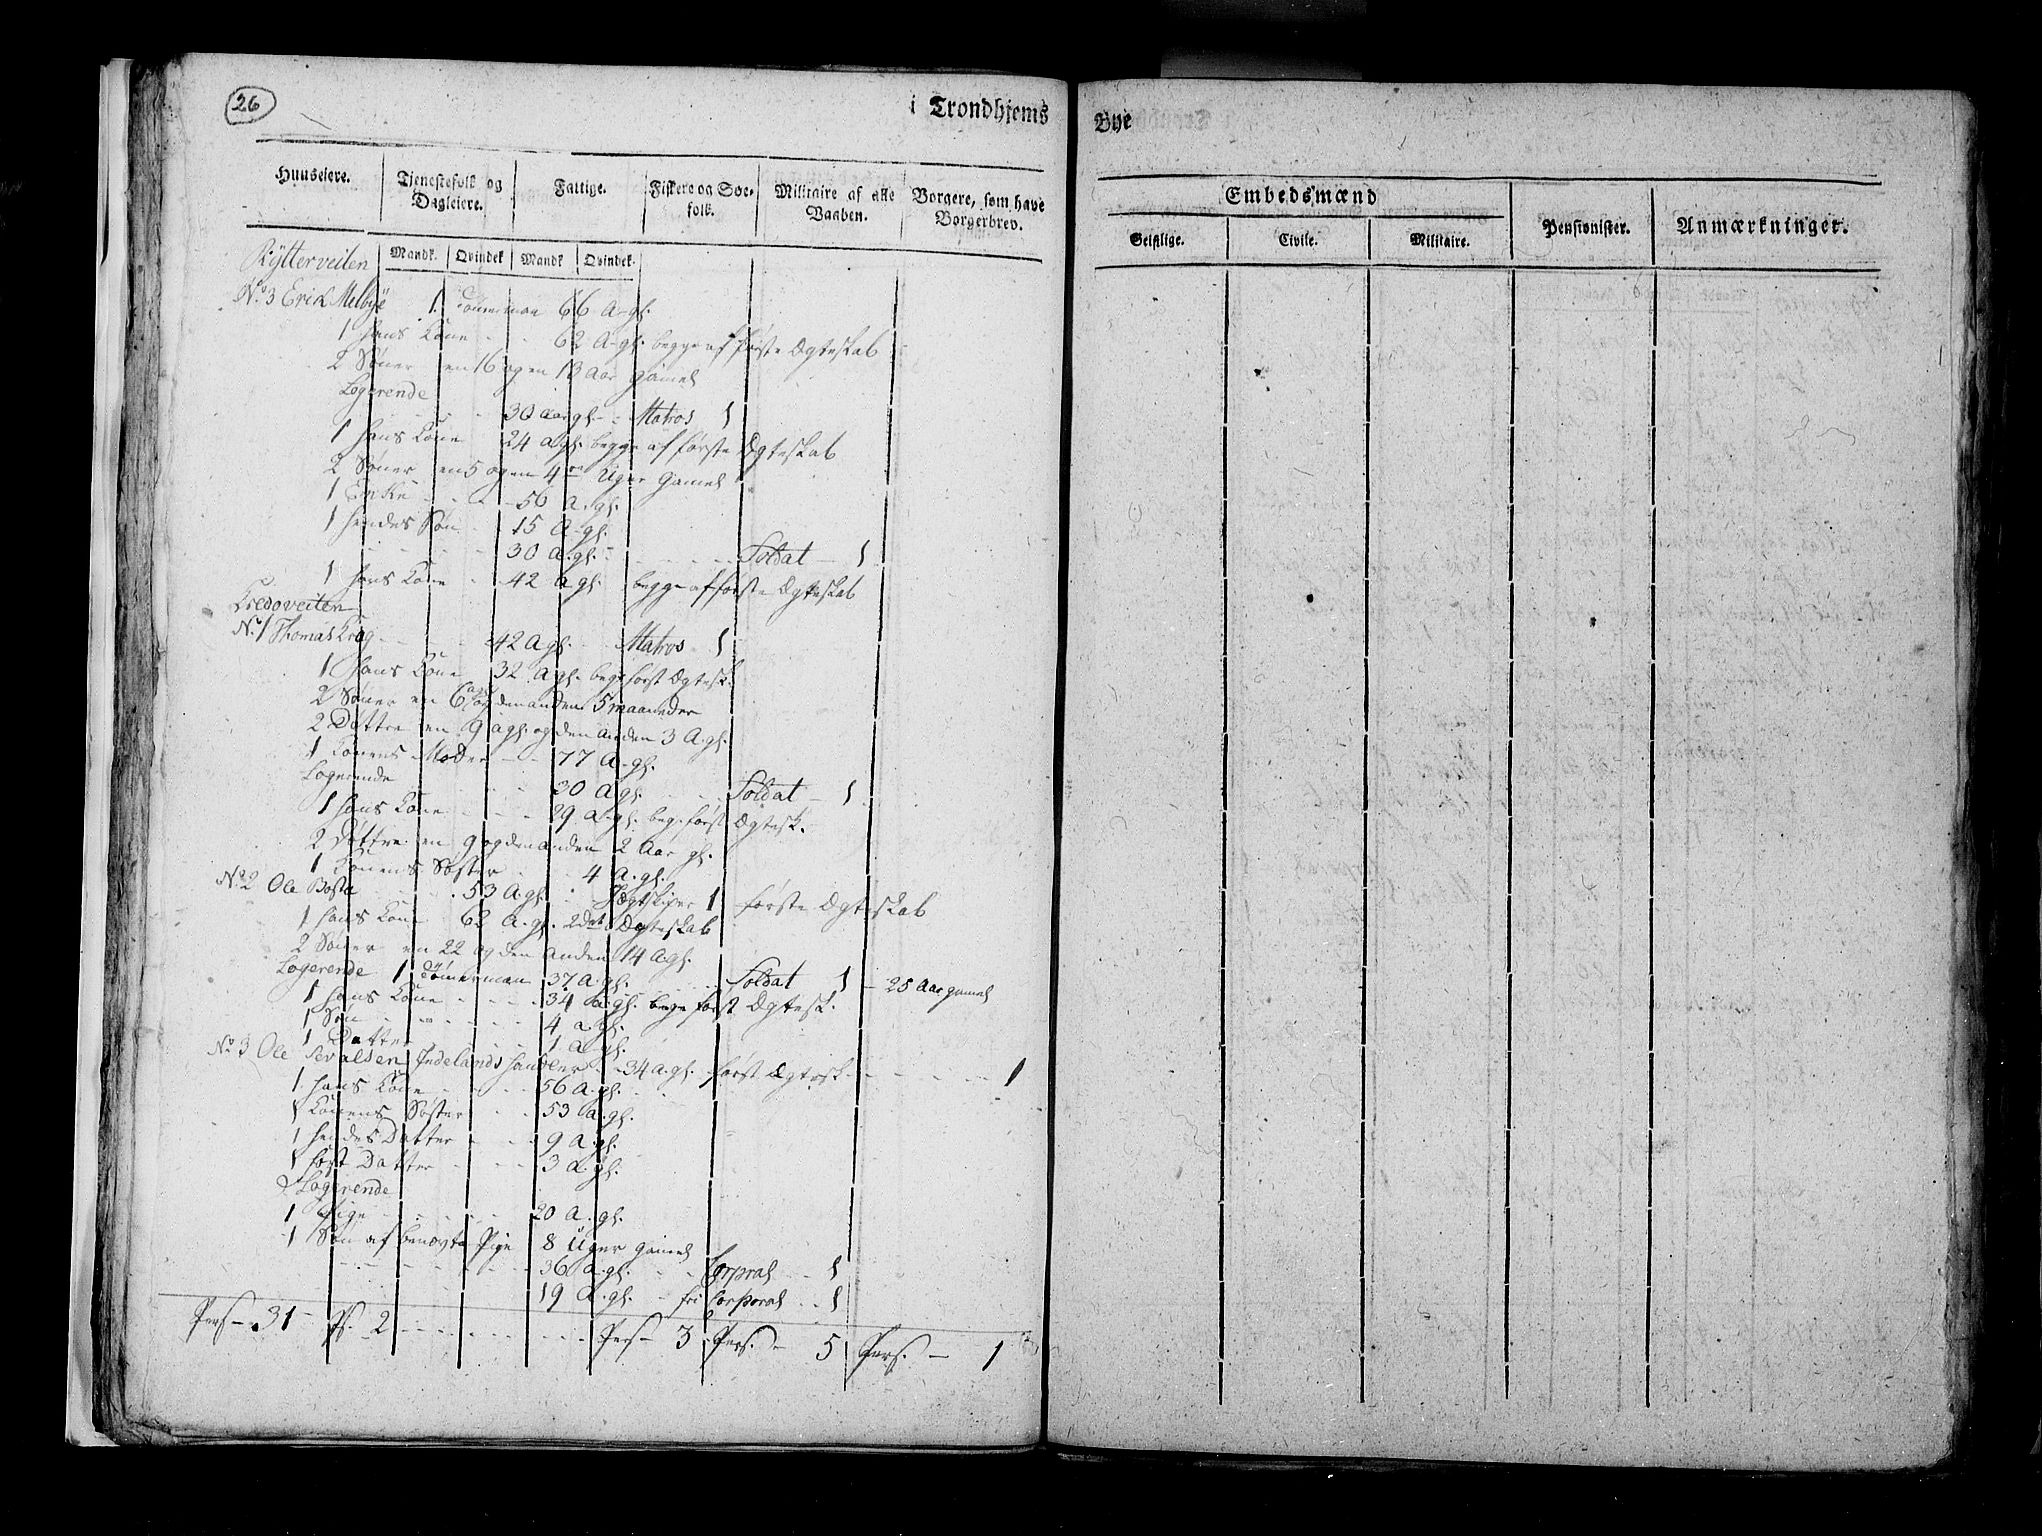 26
i Trondhjems
Bye
Huuseiere.
Tjenestefolk og Dagleiere.
Fattige.
Fiskere og Søe-folk.
Militaire af alle Vaaben.
Borgere, som have Borgerbrev.
Mandk. Qvindek Mandk Qvindek.
Embedsmænd
Geistlige.
Civile.
Militaire.
Pensionister.
Anmærkninger.
Rÿtterveiten
No. 3 Erik Melbye 1. Tömerman 66 A. gl.
1 hans Kone - - 62 A. gl. begge af første Ægteskab
2 Sönner en 16 og en 13 Aar gamel
Logerende
- - 30 aar gl. - - Matros 1
1 hans Kone 24 a gl. begge af første Ægteskab
2 Søner en 5 og en 4 Uger Gamel
1 Enke - - - 50 a. gl.
1 hendes Søn - - 15 A. gl.
- - - - - 30 a. gl. - - - - Soldat - 1
1 hans Kone - - 42 a gl. begge af første Ægteskab
Credoveiten
No. 1 Thomas Krog - - - - 42 A gl. - - Matros 1
1 hans Kone 32 A gl. beg. först Ægtesk.
2 Søner en 6 agl og den anden 5 maaneder
2 Døttre en 9 agl. og den anden 3 A. gl.
1 Konens Moder - - 77 A. gl.
Logerende - - - 30 A gl. - - Soldat - 1
1 hans Kone - - - 29 a. gl. beg. först Ægtesk.
2 Døttre en 9 og den anden 2 Aar gl.
1 Konens Søster - - 4 A. gl.
No. 2 Ole - - - 53 A gl. Jægtskiper 1 første Ægteskab
1 hans Kone 62 A. gl. 2det Ægteskab
2 Søner en 22 og den anden 14 A gl.
Logerende 1 Tømerman 37 A. gl. - - - Soldat 1 - 25 Aar gamel
1 hans Kone - - - - 34 a. gl. begge først Ægtesk.
1 Søn - - - - - 4 a gl.
1 Datter - - - 1 a gl.
No. 3 Ole Sevalsen Indelands handler - 34 a. gl. først Ægtesk. - - - - - 1
1 hans Kone - - - - 56 a. gl.
1 Konens Søster - - 53 a. gl.
1 hendes Datter - - - 9 a. gl.
1 Datter - - - 3 a. gl.
Logerende
1 Pige - - - - - 20 a. gl.
1 Søn af benævte Pige 8 Uger Gamel
- - - - - - - 36 a. gl. - - Corpral - - 1
19 A. gl. - fri Corporal - - 1
Pers - 31 - Ps. 2 - - - - - - Pers - 3 Pers. - 5 Pers. - 1